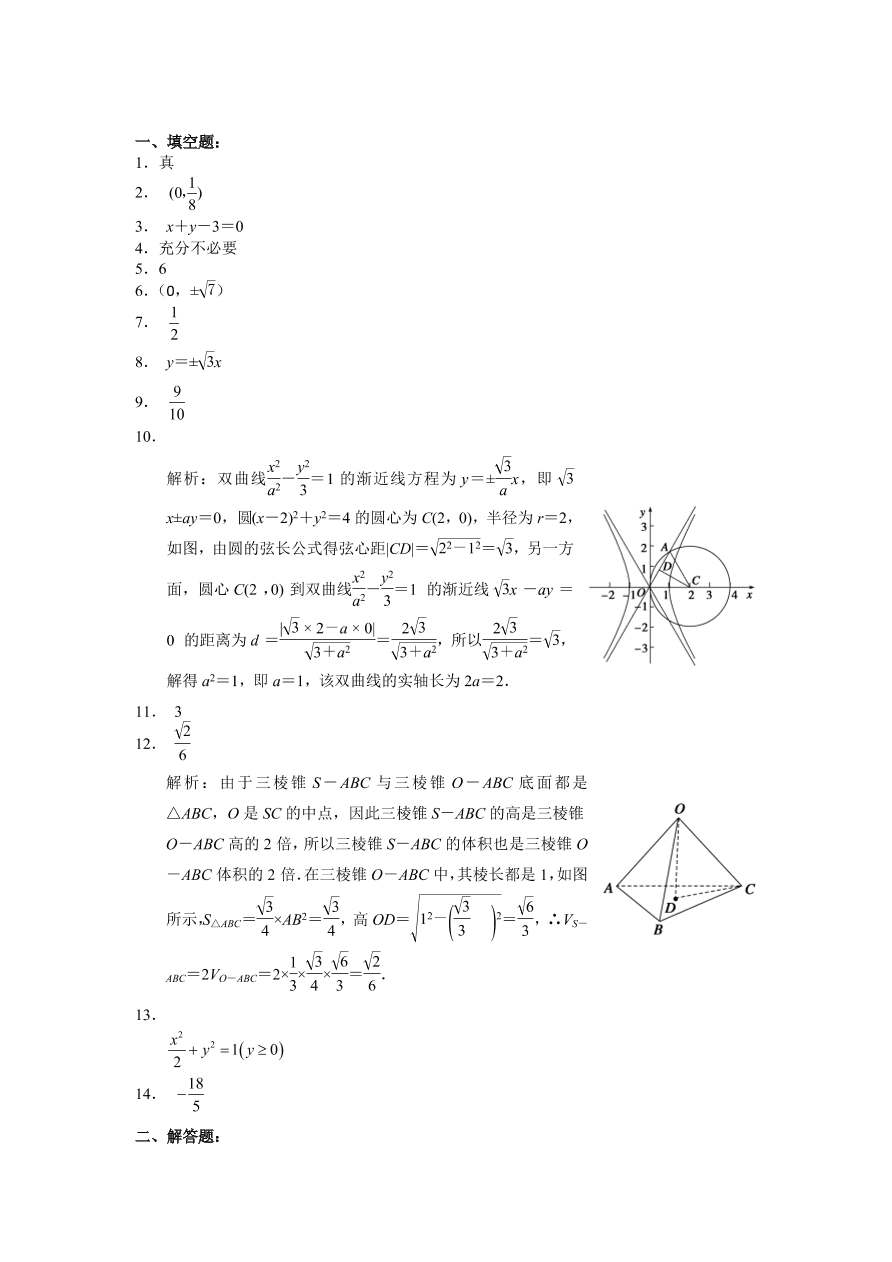 一、填空题：
1．真
2． (0,1/8)
3． x＋y－3＝0
4．充分不必要
5．6
6．（0，±√7）
7． 1/2
8． y＝±√3x
9． 9/10
10．
解析：双曲线x²/a²－y²/3＝1 的渐近线方程为 y＝±√3/a x，即 √3
x±ay＝0，圆(x－2)²＋y²＝4 的圆心为 C(2，0)，半径为 r＝2，
如图，由圆的弦长公式得弦心距|CD|＝√(2²－1²)＝√3，另一方
面，圆心 C(2，0) 到双曲线x²/a²－y²/3＝1 的渐近线 √3x －ay ＝
0 的距离为 d ＝|√3 × 2－a × 0|/√(3＋a²)＝2√3/√(3＋a²)，所以2√3/√(3＋a²)＝√3，
解得 a²＝1，即 a＝1，该双曲线的实轴长为 2a＝2．
y
3
2
1
A
D
C
－2 －1 O 1 2 3 4 x
－1
－2
－3
11． 3
12． √2/6
解析：由于三棱锥 S－ABC 与三棱锥 O－ABC 底面都是
△ABC，O 是 SC 的中点，因此三棱锥 S－ABC 的高是三棱锥
O－ABC 高的 2 倍，所以三棱锥 S－ABC 的体积也是三棱锥 O
－ABC 体积的 2 倍．在三棱锥 O－ABC 中，其棱长都是 1，如图
所示，S△ABC＝√3/4×AB²＝√3/4，高 OD＝√(1²－(√3/3)²)＝√6/3，∴VS－
ABC＝2VO－ABC＝2×1/3×√3/4×√6/3＝√2/6．
O
A
C
D
B
13．
x²/2＋y²＝1(y≥0)
14． －18/5
二、解答题：